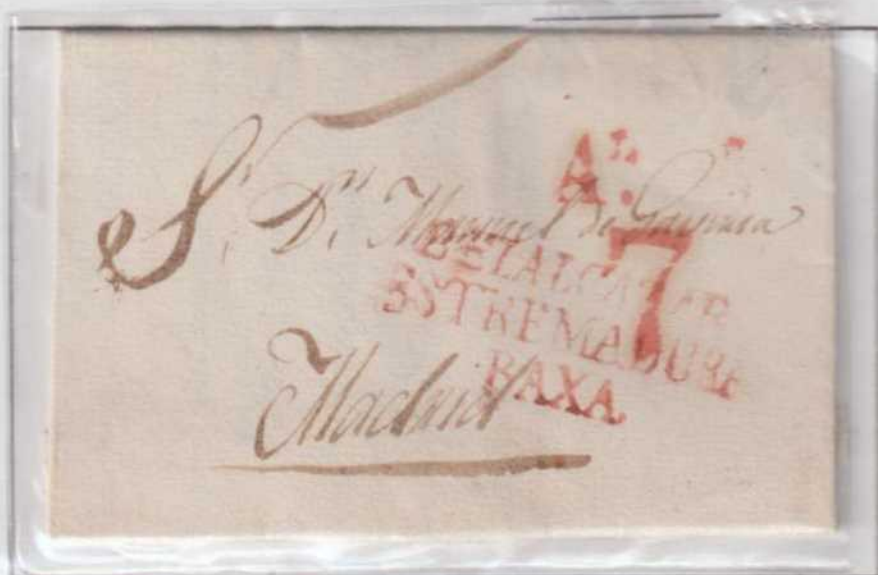 Ar.
Sr. Dn. Manuel de
7
BELALCAZAR
ESTREMADURA
BAXA
Madrid